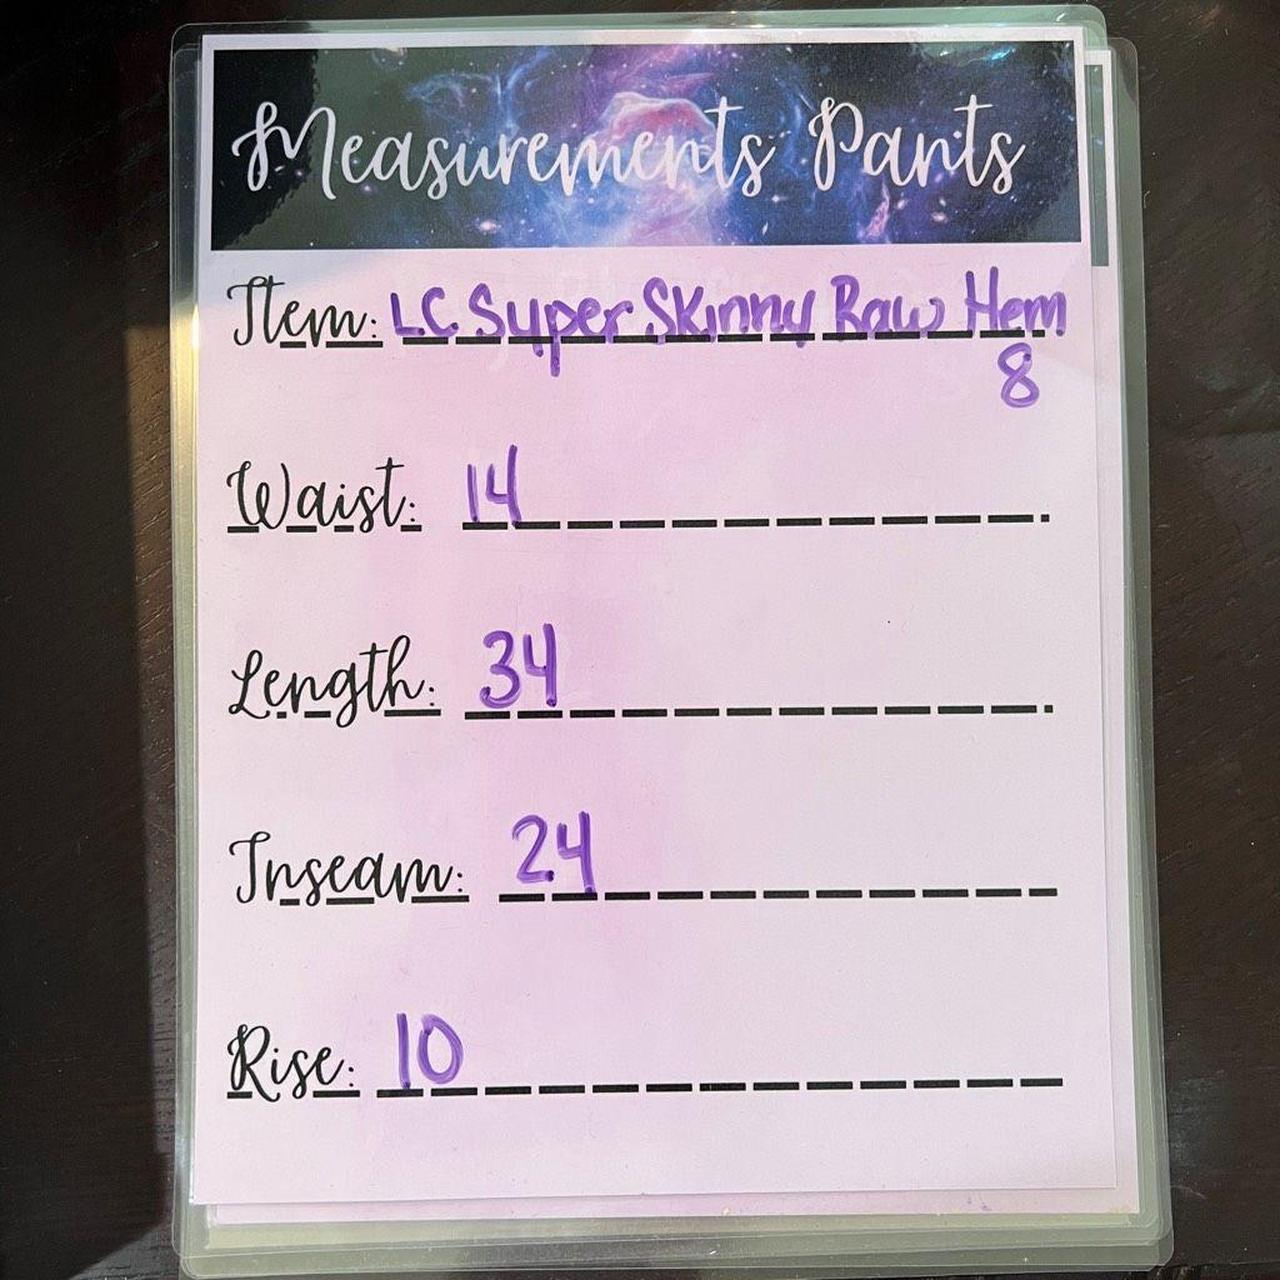 Measurements Pants
Item: LC Super Skinny Raw Hem
8
Waist: 14
Length: 34
Inseam: 24
Rise: 10